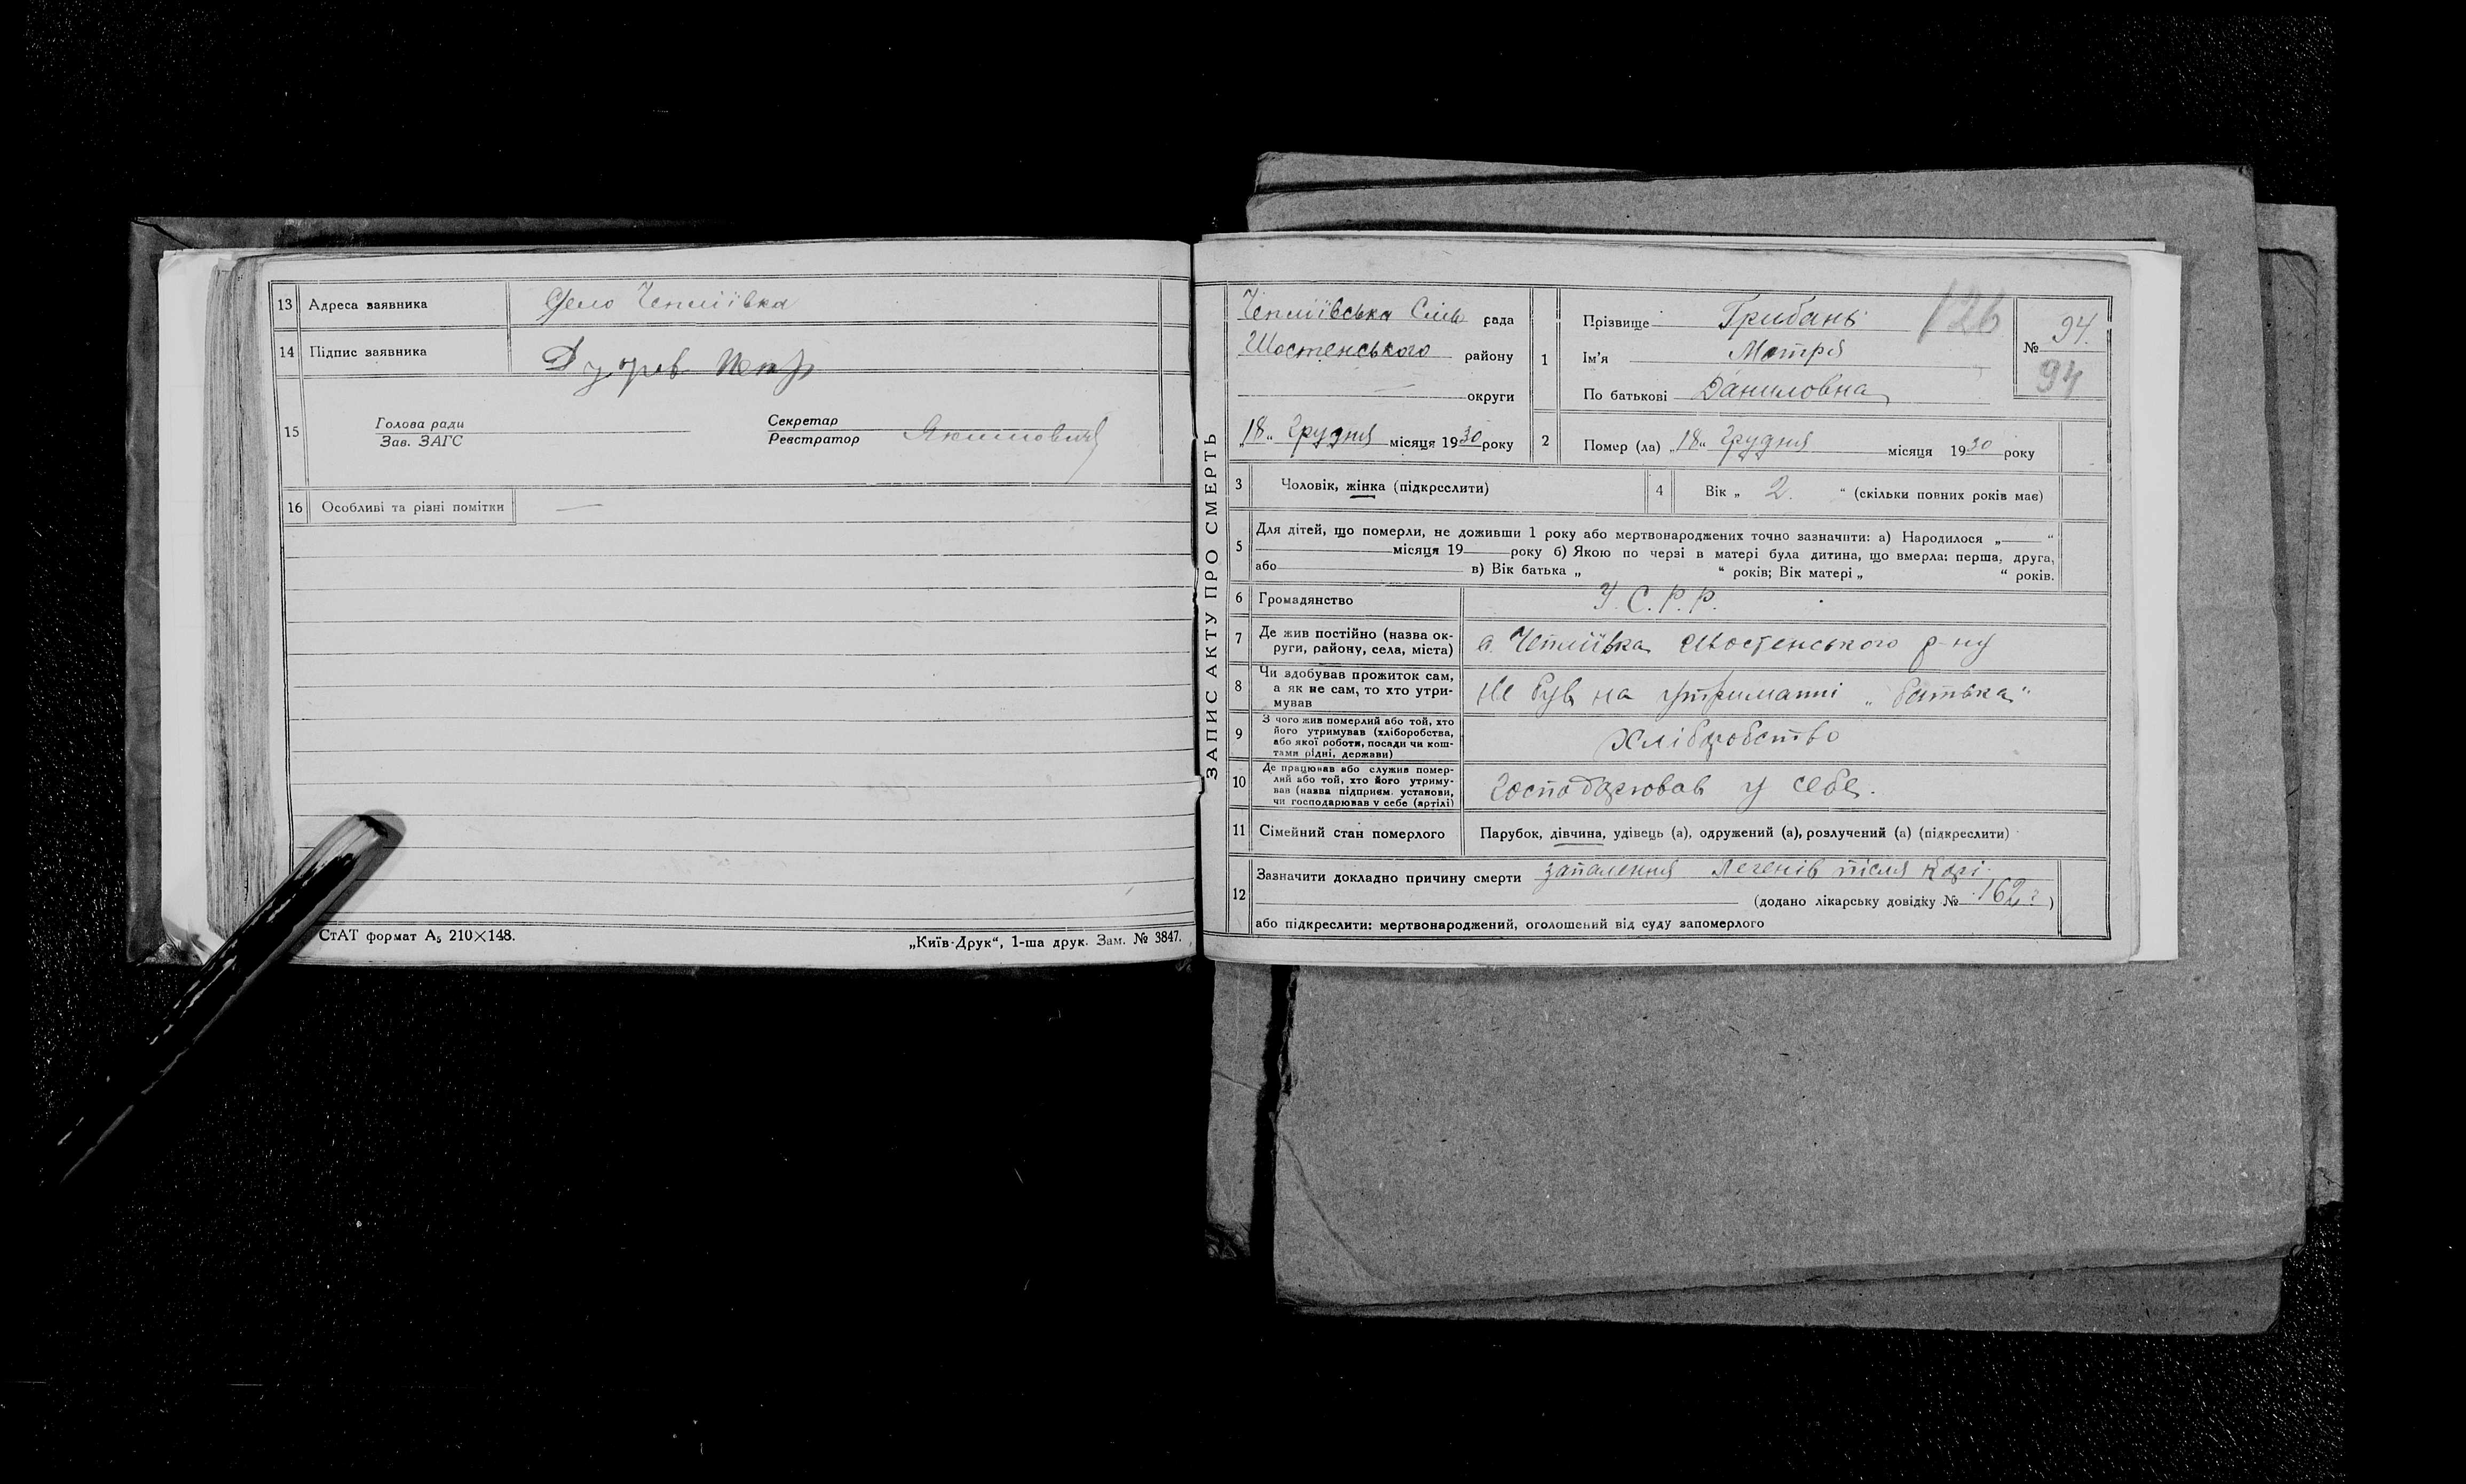 13 Адреса заявника Село Чепліївка
14 Підпис заявника
15 Голова ради
Зав. ЗАГС
Секретар
Реєстратор Якимович
16 Особливі та різні помітки —
СтАТ формат А5 210×148.
„Київ-Друк“, 1-ша друк. Зам. № 3847.
ЗАПИС АКТУ ПРО СМЕРТЬ
Чепліївська Сіль рада
Шостенського району
— округи
18 „ грудня місяця 1930 року
1 Прізвище Грибань 126
Ім'я Мотря
По батькові Даниловна
№ 94.
94
2 Помер (ла) „18“ грудня місяця 1930 року
3 Чоловік, жінка (підкреслити)
4 Вік „ 2. “ (скільки повних років має)
5 Для дітей, що померли, не доживши 1 року або мертвонароджених точно зазначити: а) Народилося „ “
місяця 19 року б) Якою по черзі в матері була дитина, що вмерла: перша, друга,
або в) Вік батька „ “ років; Вік матері „ “ років.
6 Громадянство У.С.Р.Р.
7 Де жив постійно (назва ок-
руги, району, села, міста) с. Чепліївка Шостенського р-ну
8 Чи здобував прожиток сам,
а як не сам, то хто утри-
мував Не був на утриманні „батька“
9 З чого жив померлий або той, хто
його утримував (хліборобства,
або якої роботи, посади чи кош-
тами рідні, держави) Хліборобство
10 Де працював або служив помер-
лий або той, хто його утриму-
вав (назва підприєм. установи,
чи господарював у себе (артілі) Господарював у себе.
11 Сімейний стан померлого Парубок, дівчина, удівець (а), одружений (а), розлучений (а) (підкреслити)
12 Зазначити докладно причину смерти запалення Легенів після Корі.
(додано лікарську довідку № 162 )
або підкреслити: мертвонароджений, оголошений від суду запомерлого